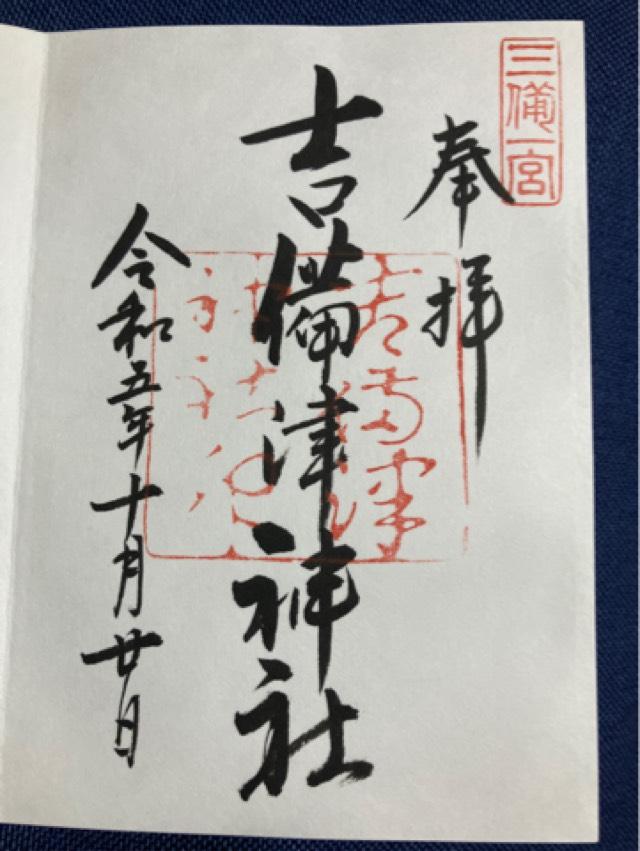 三備一宮
奉拝
吉備津神社
令和五年十月廿日